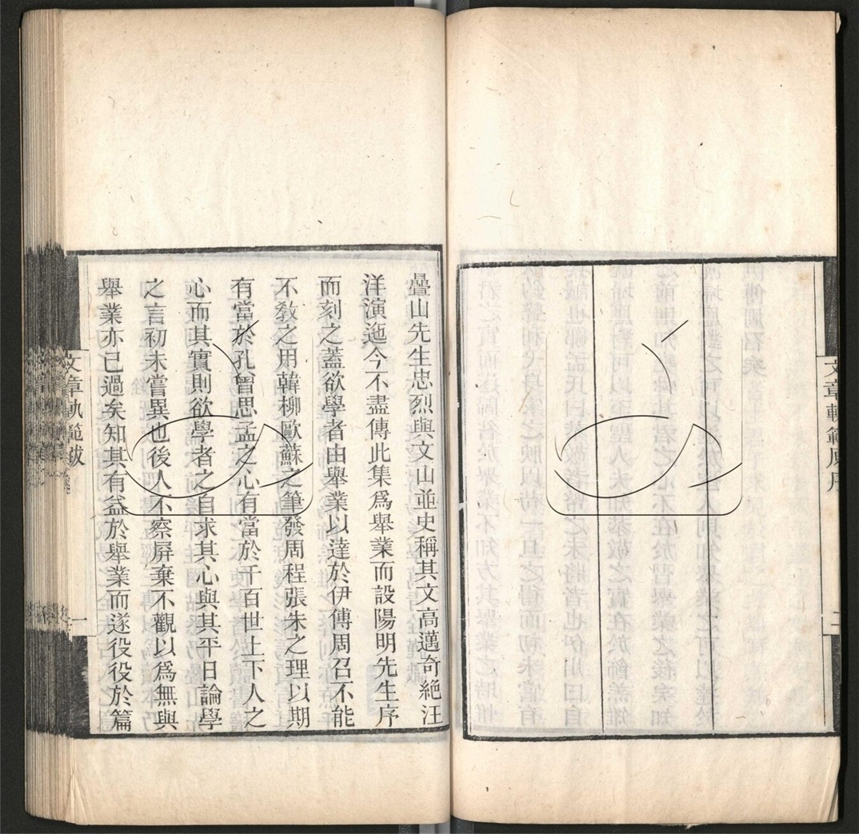 文章軌範原序
二
疊山先生忠烈與文山並史稱其文高邁奇絕汪
洋演迤今不盡傳此集爲舉業而設陽明先生序
而刻之蓋欲學者由舉業以達於伊傅周召不能
不敎之用韓柳歐蘇之筆發周程張朱之理以期
有當於孔曾思孟之心有當於千百世上下人之
心而其實則欲學者之自求其心與其平日論學
之言初未嘗異也後人不察屏棄不觀以爲無與
舉業亦已過矣知其有益於舉業而遂役役於篇
文章軌範跋
一